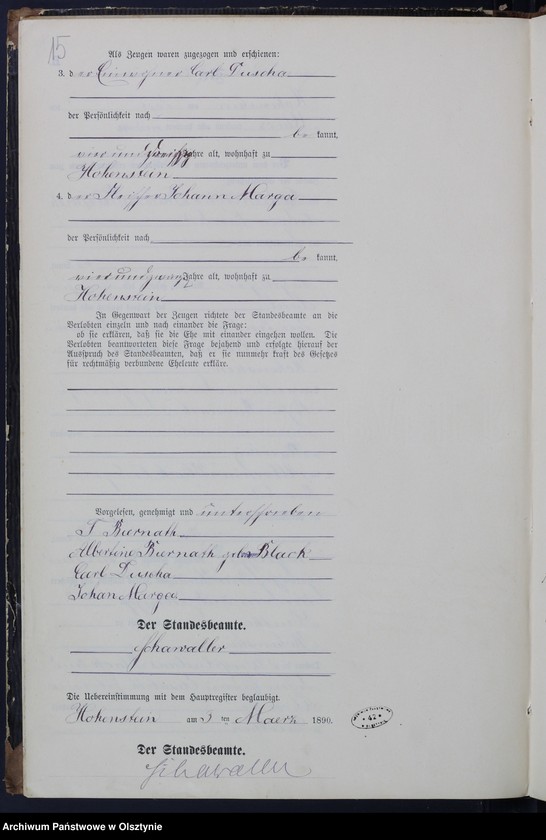 15
Als Zeugen waren zugezogen und erschienen:
3. der Einwohner Carl Duscha
der Persönlichkeit nach
be kannt,
vierunddreißig Jahre alt, wohnhaft zu
Hohenstein
4. der Johann Marga
der Persönlichkeit nach
be kannt,
vierundzwanzig Jahre alt, wohnhaft zu
Hohenstein
In Gegenwart der Zeugen richtete der Standesbeamte an die
Verlobten einzeln und nach einander die Frage:
ob sie erklären, daß sie die Ehe mit einander eingehen wollen. Die
Verlobten beantworteten diese Frage bejahend und erfolgte hierauf der
Ausspruch des Standesbeamten, daß er sie nunmehr kraft des Gesetzes
für rechtmäßig verbundene Eheleute erkläre.
Vorgelesen, genehmigt und unterschrieben
Biernath
Albertine Biernath geb. Black
Carl Duscha
Johan Marga
Der Standesbeamte.
Schawaller
Die Uebereinstimmung mit dem Hauptregister beglaubigt.
Hohenstein am 3 ten Maerz 1890.
42
Der Standesbeamte.
Schawaller
Archiwum Państwowe w Olsztynie